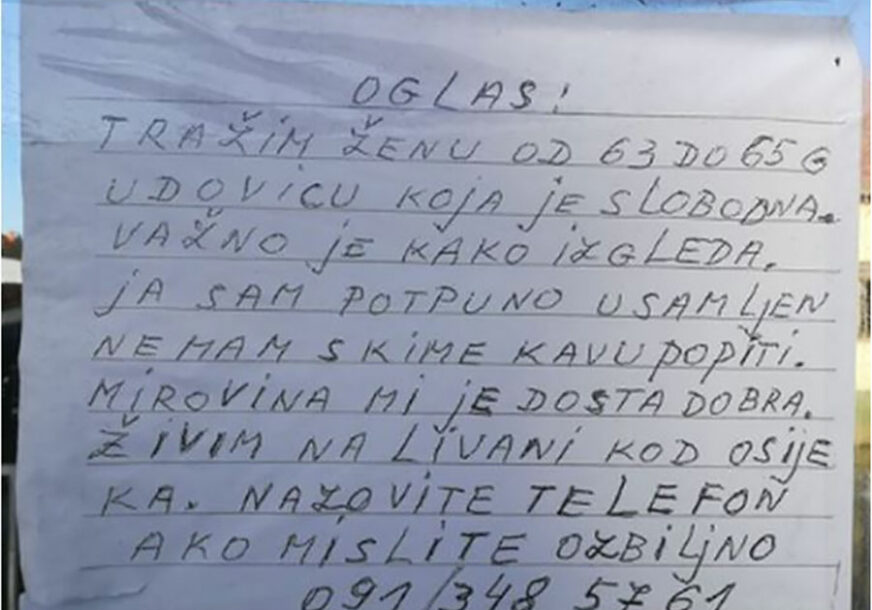 OGLAS!
TRAŽIM ŽENU OD 63 DO 65 G
UDOVICU KOJA JE SLOBODNA.
VAŽNO JE KAKO IZGLEDA.
JA SAM POTPUNO USAMLJEN
NEMAM S KIME KAVU POPITI.
MIROVINA MI JE DOSTA DOBRA.
ŽIVIM NA LIVANI KOD OSIJE
KA. NAZOVITE TELEFON
AKO MISLITE OZBILJNO
091/348 5761